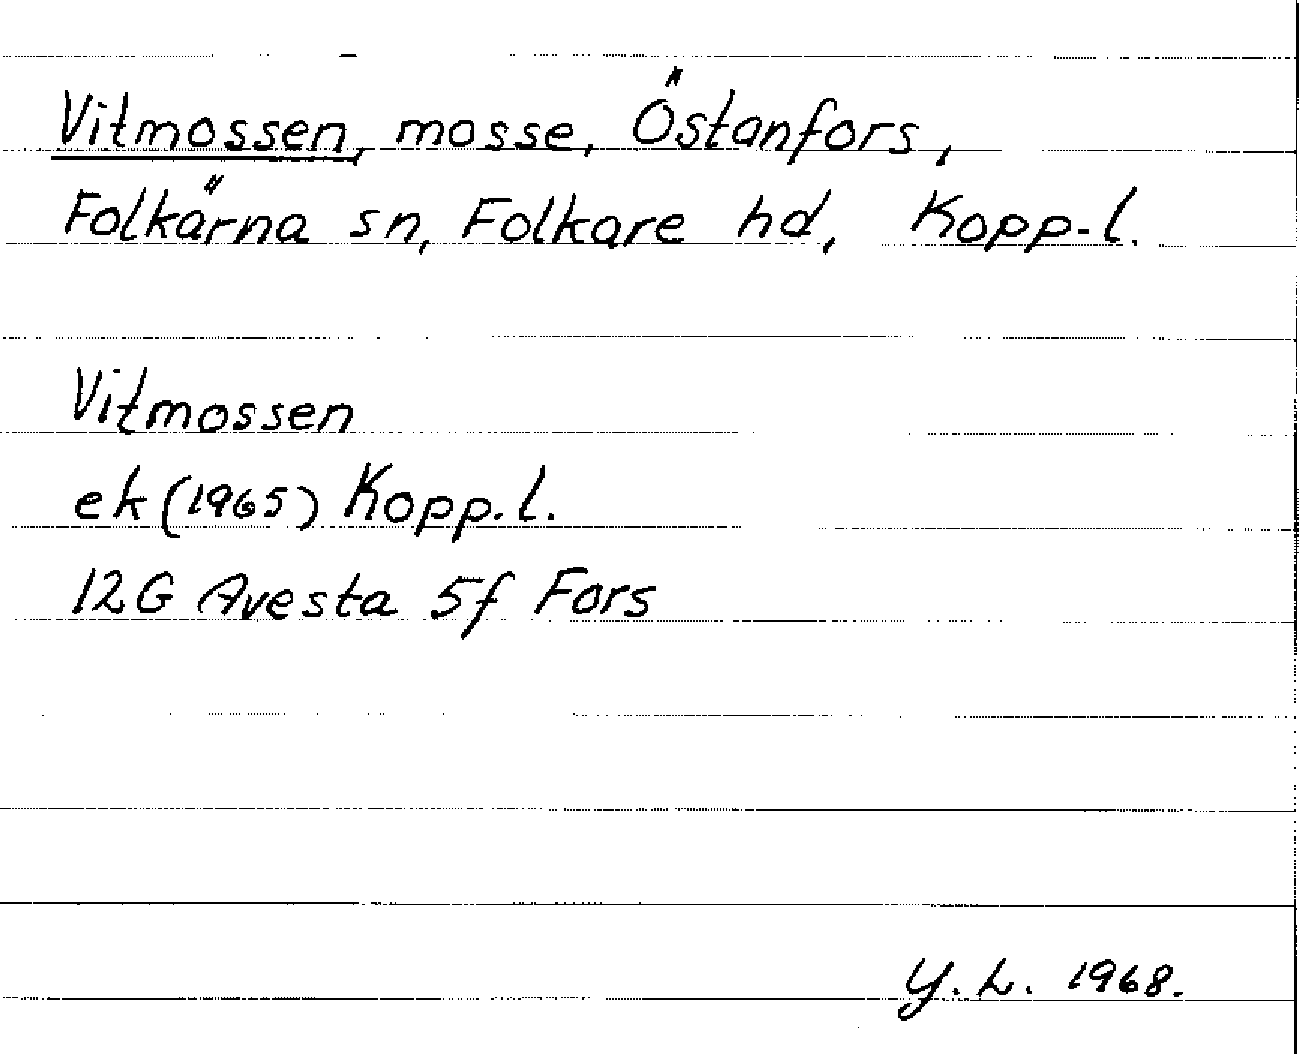 Vitmossen, mosse, Östanfors,
Folkärna sn, Folkare hd, Kopp-l.
Vitmossen
ek (1965) Kopp.l.
12G Avesta 5f Fors
Y.L. 1968.